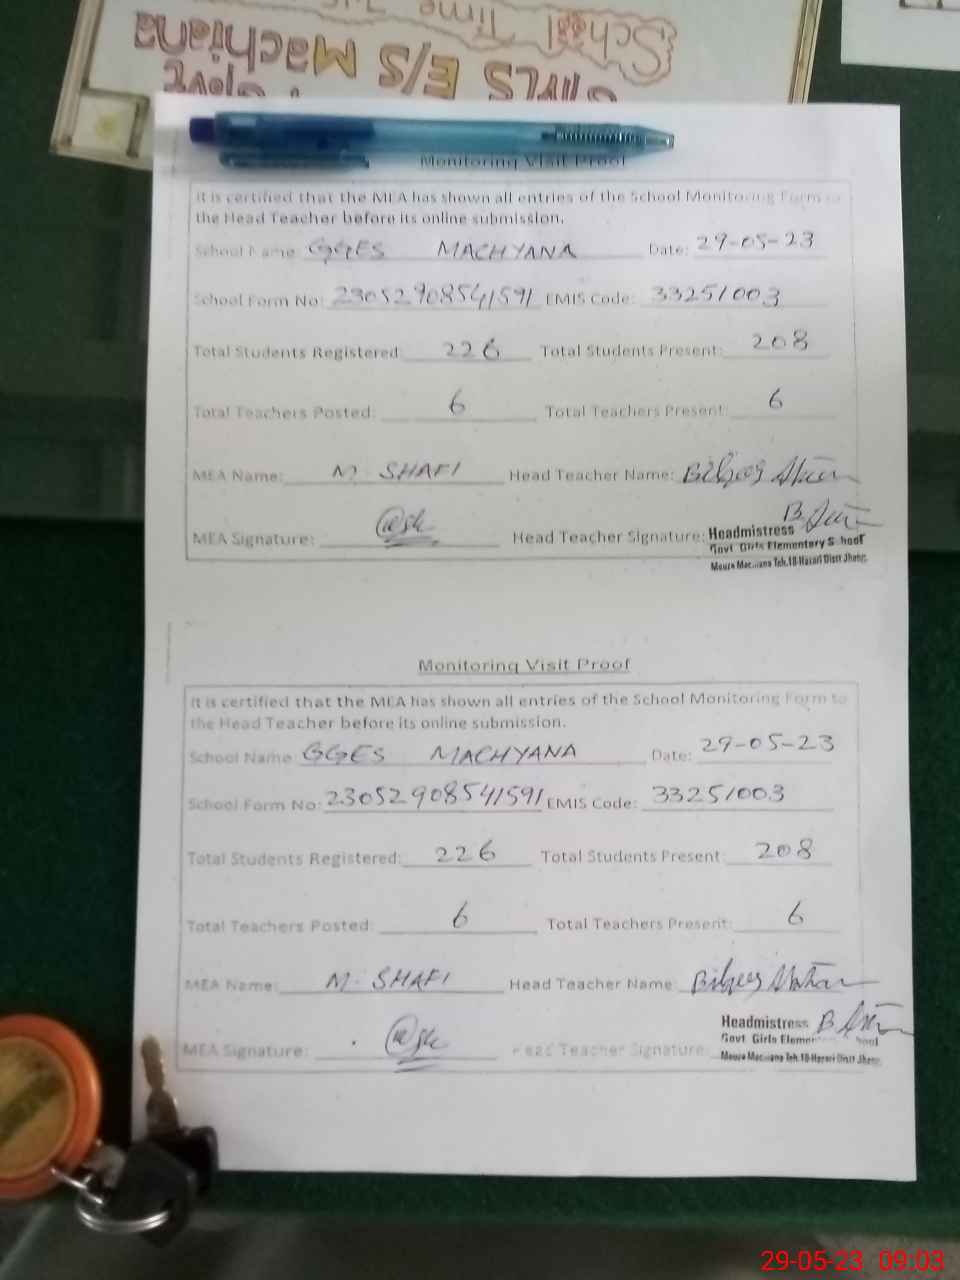 School Time
Govt
GIRLS E/S Machiana
Monitoring Visit Proof
It is certified that the MEA has shown all entries of the School Monitoring Form to
the Head Teacher before its online submission.
School Name GGES MACHYANA Date: 29-05-23
School Form No: 23052908541591 EMIS Code: 33251003
Total Students Registered: 226 Total Students Present: 208
Total Teachers Posted: 6 Total Teachers Present: 6
MEA Name: M. SHAFI Head Teacher Name:
MEA Signature: Head Teacher Signature: Headmistress
Govt Girls Elementary School
Teh.18-Hazari Distt Jhang.
Monitoring Visit Proof
It is certified that the MEA has shown all entries of the School Monitoring Form to
the Head Teacher before its online submission.
School Name GGES MACHYANA Date: 29-05-23
School Form No: 23052908541591 EMIS Code: 33251003
Total Students Registered: 226 Total Students Present: 208
Total Teachers Posted: 6 Total Teachers Present: 6
MEA Name: M. SHAFI Head Teacher Name:
Headmistress
MEA Signature: Head Teacher Signature: Govt Girls
Teh.18-Hazari Distt Jhang.
29-05-23 09:03